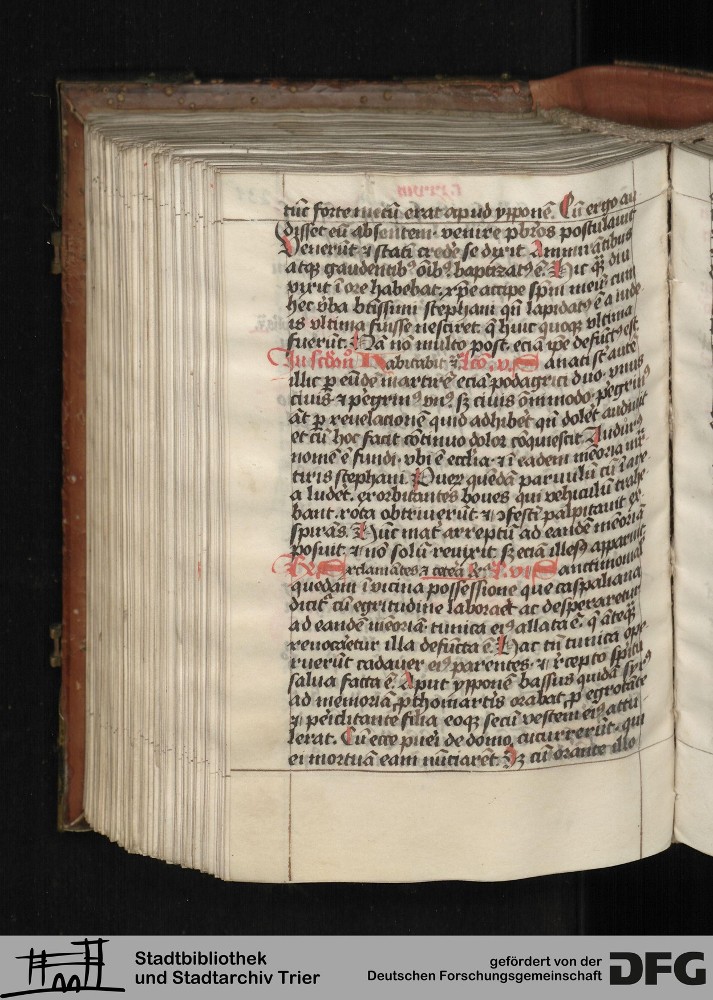 tūc forte mecū erat apud ypponē. Cū ergo au
disset eū absentem. venire pbr̄os postulauit
Venerūt ⁊ statī crede̾ se dixit Ammirātibus
atqꝫ gaudentibꝯ oībꝯ baptizatꝯ ē. Hic qꝫ diu
vixit ī ore habebat. xp̄e accipe sp̄m meū cum
hec v̾ba bt̄issimi stephani qn̄ lapidatꝯ ē a iude
is vltima fuisse nesciret. q̄ huic quoqꝫ vltima
fuerūt. Nā nō multo post. eciā ip̄e defūctꝯ est.
Habitabit ⁊ Lc̄o. v. Sanati st̄ aute̅
illic p eūde̅ martire̅ eciā podagrici duo. vnus
ciuis. ⁊ pe̾grinꝯ vnꝯ. sꝫ ciuis ōnimodo. pe̾grinꝯ
āt p reuelacionē quid adhibe̾t qn̄ dole̾t audiuit
et cū hoc facit cōtinuo dolor cōquiescit. Audurꝯ
nomē ē fundi. vbi ē eccl̄ia. ⁊ ī eadem mēoria mr̄
tiris stephani. Puer̄ quēdā paruulū cū ī are
a lude̾t. exorbitantes boues qui vehiculū trahe
bant. rota obtriuerūt ⁊ ꝯfestī palpitauit ex
spirās. Hūc mat̾ arreptū ad eandē mēoriā
posuit. ⁊ nō solū reuixit sꝫ eciā illesꝯ apparuit
L. vi Sanctimonial
quedam ī vicina possessione que caspaliana
dicit᷑ cū egritudine laborar̄et ac desperaretur
ad eandē mēoriā tunica eiꝯ allata ē. q̄ āteqꝫ
reuocare̾tur illa defūcta ē. Hac tn̄ tunica ope
ruerūt cadauer eiꝯ parentes. ⁊ r̾cepto spū
salua facta ē. Aput ypponē bassus quidā syrꝯ
ad memoriā p̄thomart̾is orabat. p egrotāte
⁊ pe̾iclitante filia. eoqꝫ secū vestem eiꝯ attu
lerat. Cū ecce pueri de domo. cucurrerūt. qui
ei mortuā eam nūciare̾t. Sꝫ cū orante illo
Stadtbibliothek
und Stadtarchiv Trier
gefördert von der
Deutschen Forschungsgemeinschaft
DFG